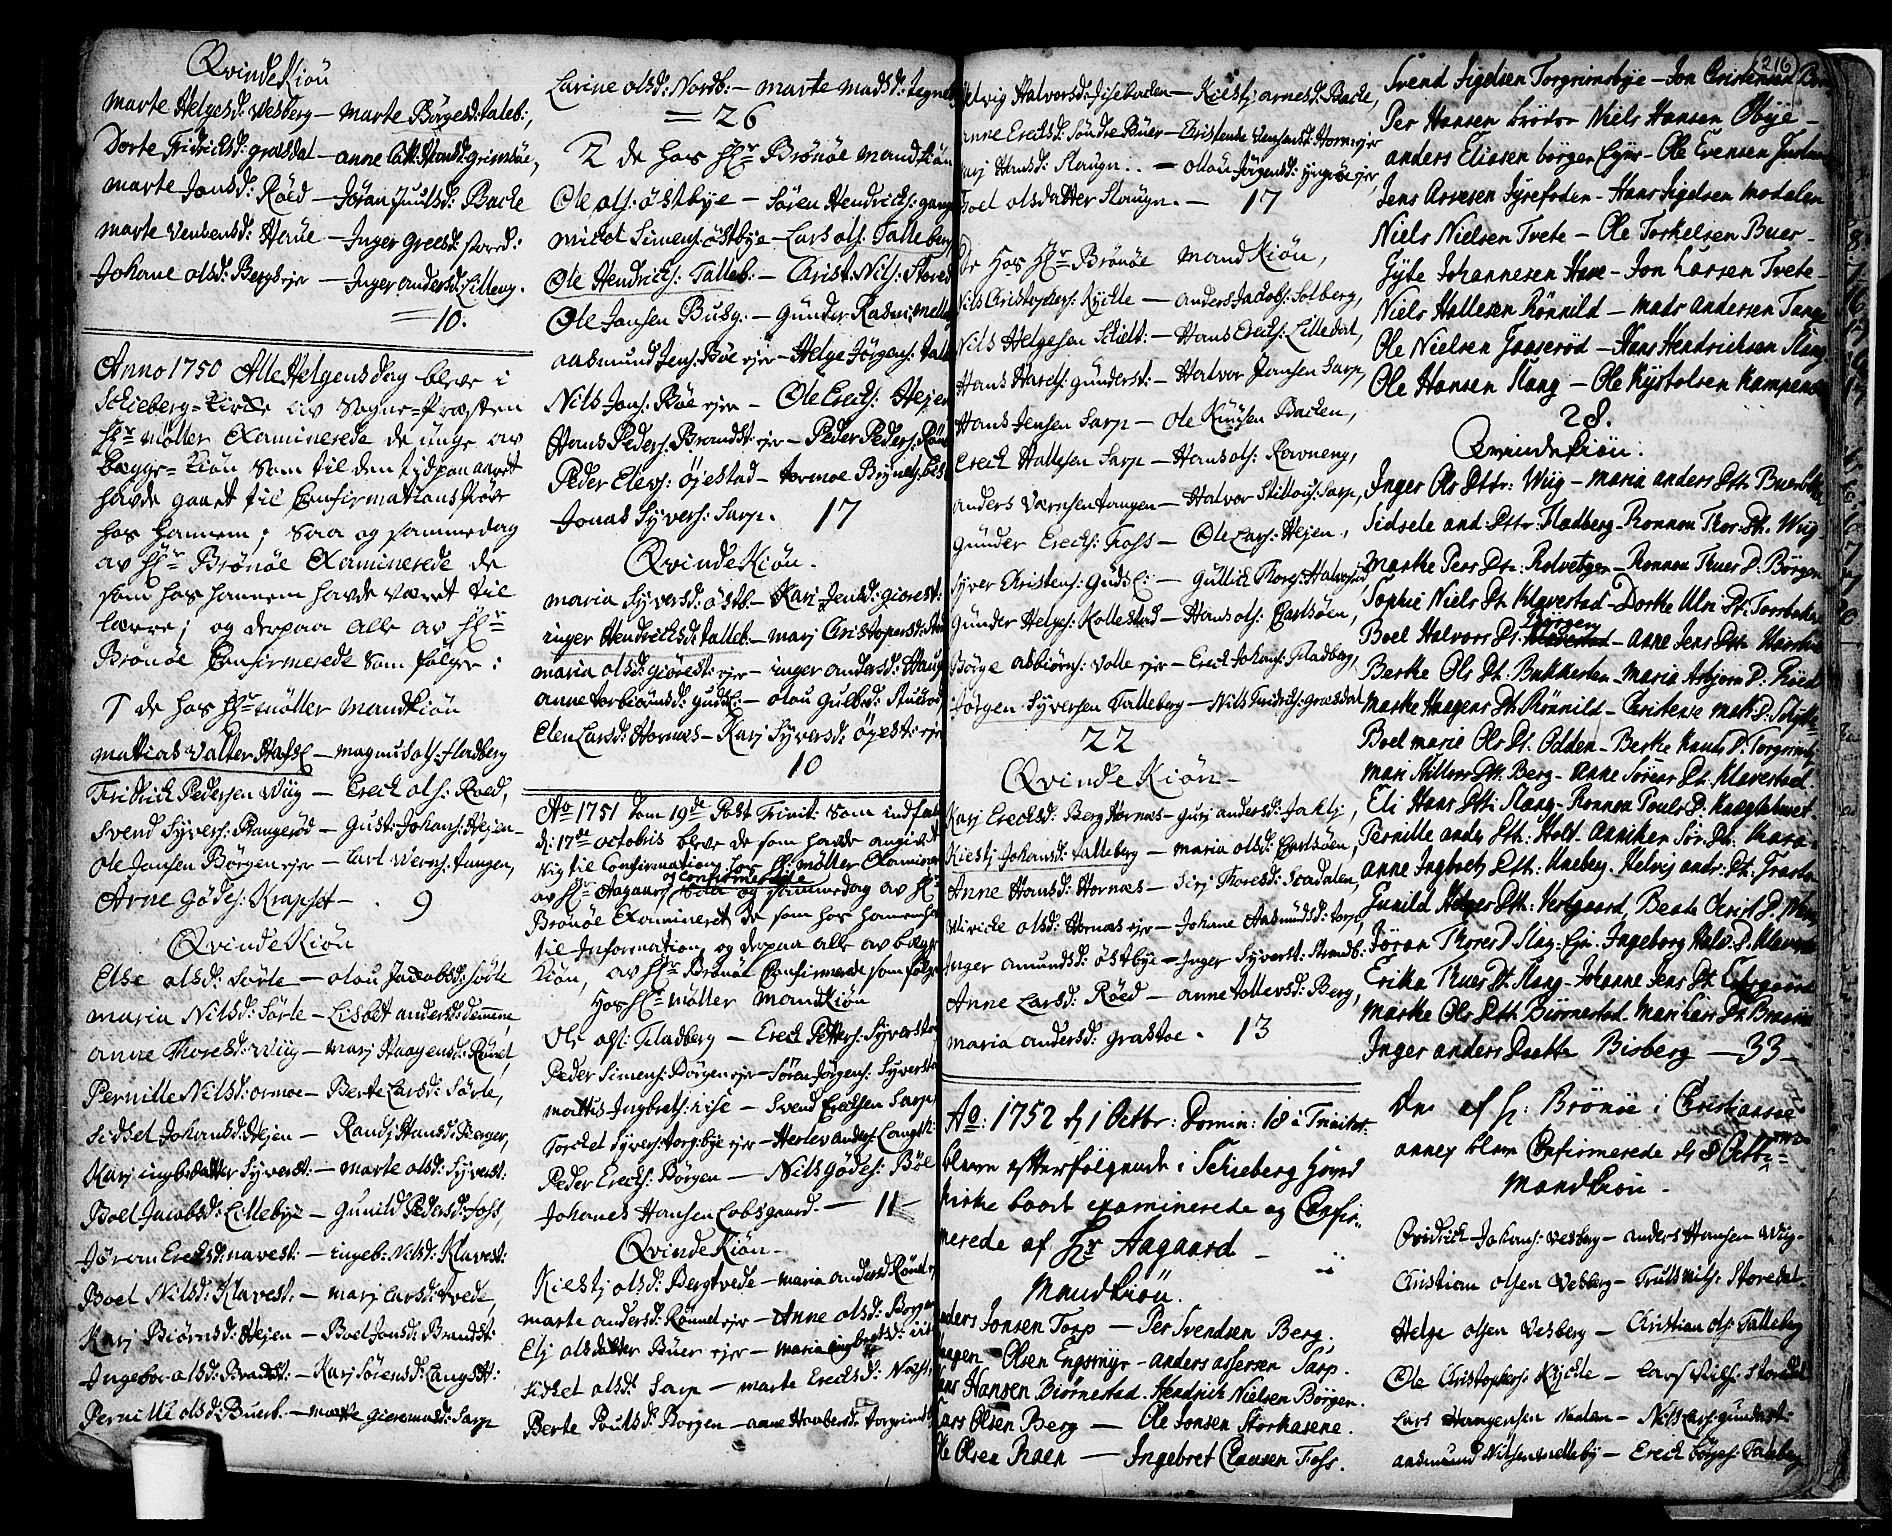 QvindeKiön
Marte Helgesd: Vesberg — Marte Börgesd: taleb:,
Dorte Fridricksd: græsdal — anne
Marte Jonsd: Röed — Jöran Juulsd: Backe
Marte Vensensd: Haüe — Inger greesd:
Johane olsd: Bergs ejer — Inger andersd: Lilleng.
10.
Anno 1750 AlleHelgensdag bleve i
Schieberg-Kirke av Sogne-Præsten
Hr Møller Examinerede de unge av
begge-Kiön som til den tid paa aaret
havde gaaet til Confirmations
hos hannem; Saa og sammedag
av Hr Brönöe Examinerede de
som hos hannem havde været til
lærre; og derpaa alle av Hr
Brönöe Confirmerede som følger:
de hos Hr Møller MandKiön
Mattias Valter — Magnus ols: Fladberg
Fridrich Pedersen Wiig — Erech ols: Roed,
Svend Syvers: Stangerød — Gust: Johans: Hejen —
Ole Jansen Börgen ejer — Carl Werns: tangen,
Arne Gödes: Krapföt — 9
QvindeKiön
Else olsd: Sørle — olou Jacobsd: Sørle
Maria Nilsd: Sörle — Lisbet andersd: demme,
anne Thoresd: Wiig — Marj Haagensd: Rönel,
Pernille Nilsd: ormoe — Berte Larsd: Sörle,
Sidsel Johansd: Hejen — Randj Hansd: Berger,
Karj ingebdatter Syverst: — Marte olsd: Syverst:
Boel Jacobsd: Lillebye — Gunild Pedersd: Foss,
Jöran Erecksd: navest: — ingeb: Nilsd: Klavest:
Boel Nilsd: Klavest: — marj Larsd: tvede,
Karj Biörnsd: Hejen — Boel Jonsd: Brandst:
Ingebor olsd: Brandst: — Karj Sörensd: Langst:
Pernille olsd: Buerb. — marte gieremasd: Sarp
Larine olsd: Nordb: — marte madsd: tegneb
26
2 de hos Hr Brönöe mandkiön
Ole ols: östbye — Sören Hendricks:
Simens: östbye — Lars ols: Talleberg
Ole Hendricks: Talleb: — Christ: Nils: Stored
Ole Jansen Busg: — Günder Rasm:
aasmund Jens: Böe ejer — Helge Jörgens: tall
Nils Jons: Böe ejer — Ole Erechs: Hejen
Hans Peders: Brandst: ejer — Peder Peders: Rön
Peder Elevs: öjestad — tormoe Brynels:
Jonas Syvers: Sarp. 17
QvindeKiön.
Maria Syversd: östb: — Karj Jensd: giorest:
inger Hendricksd: talleb: — marj Christopersd:
maria olsd: giörest: ejer — inger andersd: Haug
anne torbiönsd: Gudsl: — olou Gulbrd:
Elen Larsd: Hornæs — Karj Syversd: öyest: ejer
10
Ao 1751 Dom 19de Post Trinit: som indfaldt
d: 17de octobris bleve de som havde angivet
sig til Confirmation hos Hr Møller Examinered
og Confirmerede
av Hr Aagaard og sammedag av Hr
Brönöe Examineret de som hos hannem
til Information, og derpaa alle av begge
Kiön, av Hr Brönöe Confirmerede som følger
Hos Hr Møller MandKiön
Ole ols: Fladberg — Erech Petters: Syversta
Peder Simens: Börgen ejer — Sören Jörgens: Syversta
Mattis Ingbrets: iise — Svend Erechsen Sarp
Torckel Syvers: torgsbye ejer — Herlev anders: Langst:
Peder Erechs: Börgen — Nils Gödes: Böe
Johanes Hansen Lobsgaard. — 11
QvindeKiön —
Kiestj olsd: Bergtvede — maria andersd Rönel
marte andersd: Rönnel ejer — Anne olsd: Borgen
Elj olsdatter Büer ejer — maria ingbretsd: iise
Sidsel olsd: Sarp — marte Erechsd:
Berte Poulsd: Borgen — anne Haabersd:
Helvig Halversd: Isebacken — Kiestj arnesd: Backe,
anne Erecksd: Söndre Büer — Christense
Marj Hansd: Slaugn.. — ollou Jörgensd: ejer,
Boel olsdatter Slaugn. — 17
De Hos Hr Brönöe MandKiön,
Nils Christophers: Kyckle — anders Jacobs: Solberg,
Nils Helgesen Schielt: — Hans Erichs: Lilledal,
Hans Hards: gunderst: — Halvor Jansen Sarp,
Hans Jensen Sarp — Ole Knusen Backen,
Ereck Hallesen Sarp — Hans ols: Ravneng,
anders Værnsen tangen — Halvor Sarp,
Günder Erechs: Foss — Ole Lars: Hejen,
Syver Christens: Gudsl: — Gullick Thorgs: Halvorsrud
Gunder Helges: Kollestad — Hans ols: Carlsöen,
Börge asbiörns: Volle ejer — Erech Johans: Fladberg,
Jörgen Syversen Talleberg — Nils Fridrichs: Græsdal
22
QvindeKiön —
Karj Erecksd: Berg Hornæs — gurj andersd: Jaklj,
Kiestj Johansd: talleberg — maria olsd: Carlsöen,
Anne Hansd: Hornæs — Sirj Thoresd: Svadalen,
Wivicke olsd: Hornæs ejer — Johane Aasmundsd: torp,
Inger amundsd: östbye — Inger Syverst: Strandb:
Anne Larsd: Röed — anne tollevsd: Berg,
Maria andersd: grastoe. 13
Ao: 1752 d 1 Octbr: Domin: 18 à Trinitat:
bleve efterfölgende i Schieberg Hoved
Kirke baade examinerede og Confir-
merede af Hr Aagaard —
Mandkiön.
Anders Jonsen Torp — Per Svendsen Berg.
Haagen Olsen Engsmyr — anders assersen Sarp.
Hans Hansen Biørnestad. Hendrich Nielsen Börgen.
Lars Olsen Berg — Ole Jonsen Storkasene.
Ole Olsen Raen — Ingebret Clausen Foss.
216
Svend Sigelsen Torgrimsbye — Jon Christensen
Per Hansen broder Niels Hansen Obye —
anders Eliasen börgen Ejer — Ole Evensen
Jens Arvesen Syrefoden — Hans Sigelsen Modalen
Niels Nielsen Tvete — Ole Torkelsen Buer —
Gyte Johannesen Have — Jon Larsen Tvete —
Niels Hallesen Rönnild — mads andersen Tange
Ole Nielsen Gaaseröd — Hans Hendrichsen Slang
Ole Hansen Slang — Ole Kystolsen Kampenes
28.
Qvindekiön.
Inger Ols Dttr: Wiig — Maria anders Dtt Buerb
Sidsele and: Dttr Fladberg — Ronnou Thor: Dt. Wiig
Marthe Pers Dtr: Rolvetgen — Ronnou Thuer D: Börgen
Sophie Niels Dt. Klavestad — Dorthe Uls: Dt: Torsbek
Börgen
Boel Halvors Dt: — anne Jens Dtt
Berthe Ols Dt. Bakkerten — Maria Asbjorn D. Röed
Marthe Haagens Dt. Rönnild — Christense Mats D.
Boel marie Ols Dt. Odden — Berthe Knuds D. Torgrimb
Mari Dtt. Berg — Anne Sörens Dt. Klavestad
Eli Hans Dtt: Slang — Ronnou Pouls D.
Pernille anders Dtt: Holt. Anniken Sör: Dt:
anne Ingbrets Dtt: Kneberg. Helvig andr: Dt. Grasto
Gunild Helges Dtt: Vestgaard, Beate Christ D.
Jöran Thores D. Slag: Ejer. Ingeborg Halv: D. Klavest
Erika Thues Dt. Slang — Johanne Jens Dt.
Marthe Ols Dtt. Biörnestad. Mari Lars Dt.
Inger anders Daetter Bisberg — 33 —
De af H: Brönöe i Christiansöe
annex bleve Confirmerede d 8 Octbr
Mandkiön —
Fridrich Johans: Vesberg — anders Hansen Wiig —
Christian Olsen Vesberg — Truls Nils: Storedal
Helge olsen Vesberg — Christian ols: Talleberg
Ole Christophers: Kyckle — Lars Nils: Storedal
Lars Haagensen — Nils Lars: gundest:
aasmund Nilsen — Erich börges: Taleberg